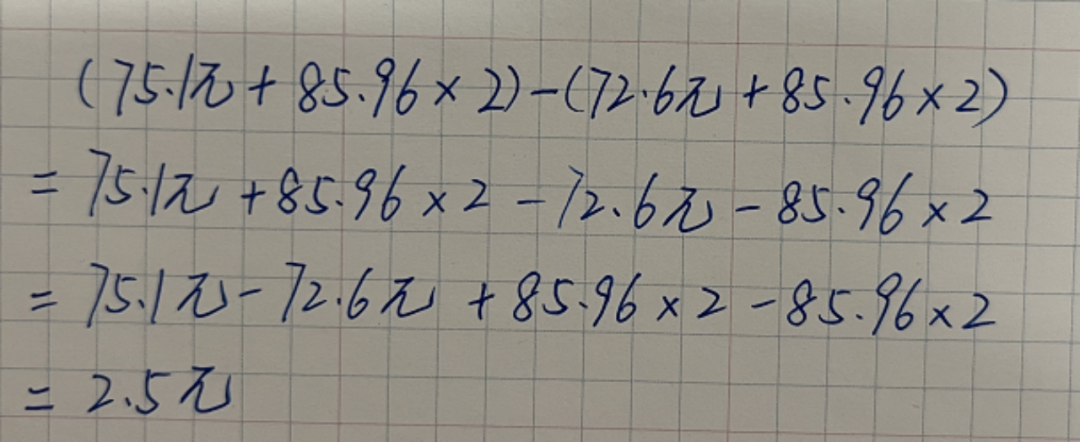 (75.1元+85.96×2)-(72.6元+85.96×2)
=75.1元+85.96×2-72.6元-85.96×2
=75.1元-72.6元+85.96×2-85.96×2
=2.5元